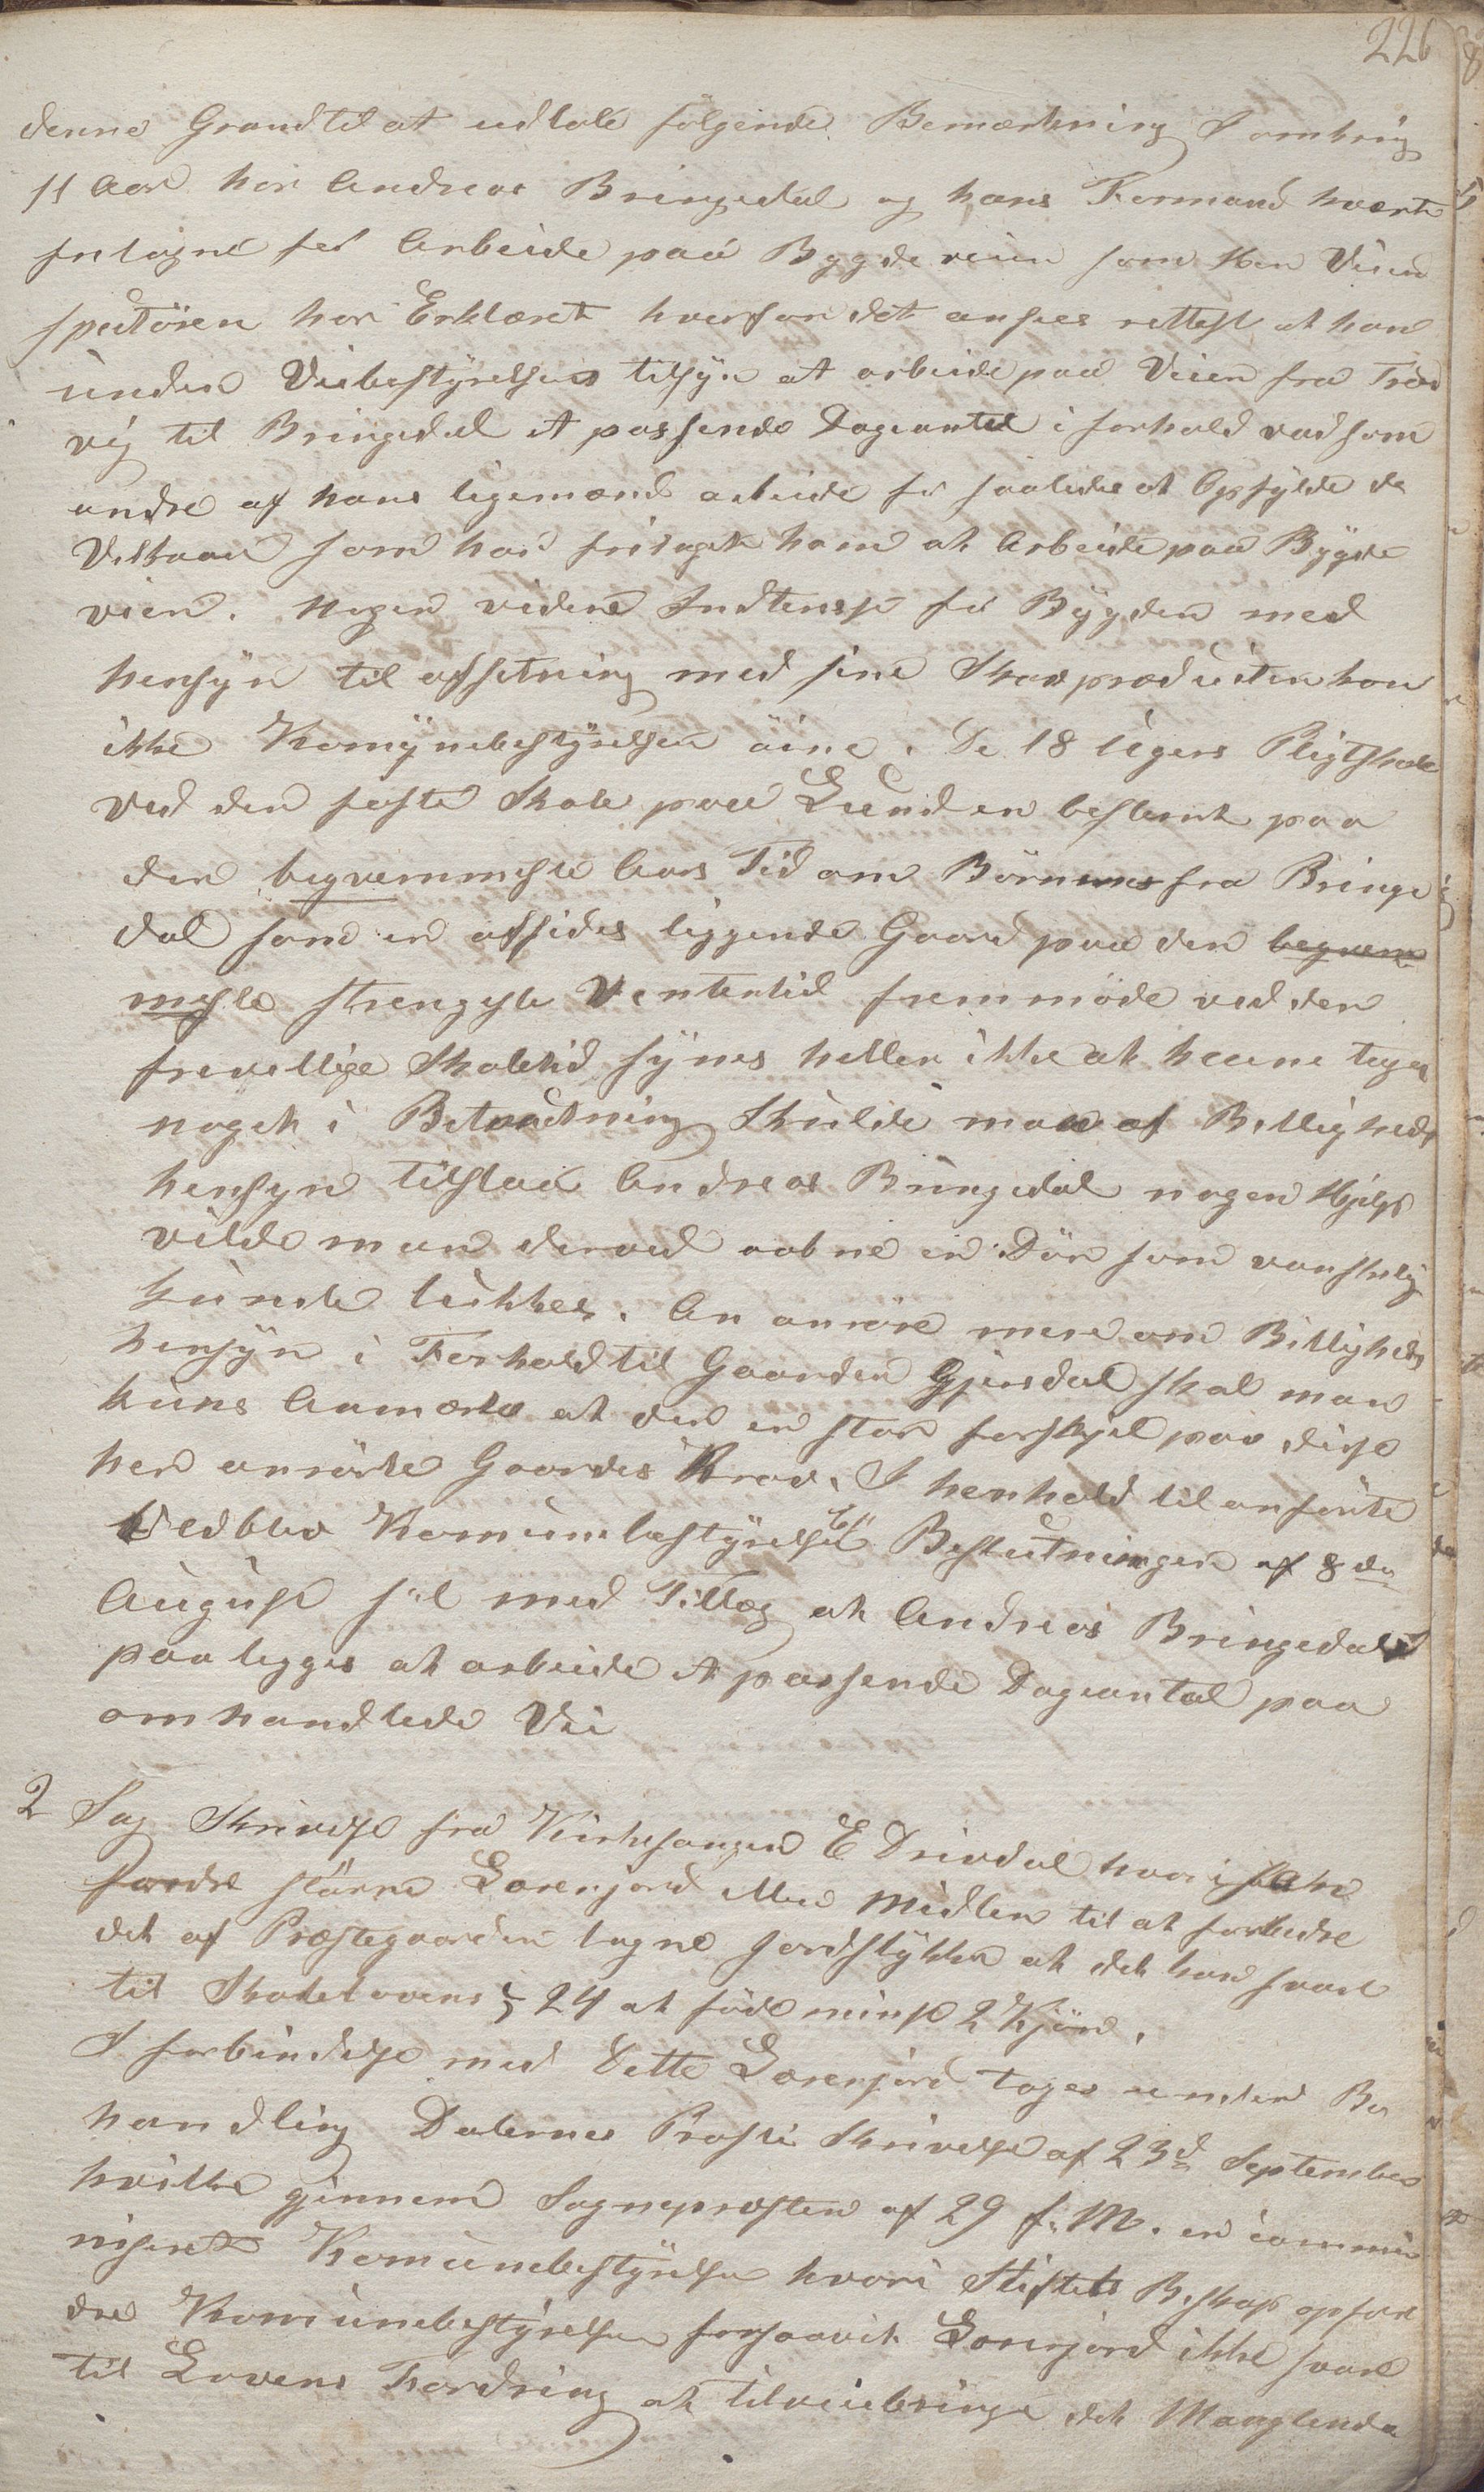 226
denne Grund til at udtale følgende Bemærkning I omkring
11 Aar har Andreas Bringedal og hans Formand værte
fritagne for Arbeide paa Bygdeveien som Hen Veiin
spectören har Erklæret hvorfor det ansees rettest at han
under Veibestyrelsens tilsyn at arbeide paa Veien fra Træd
vig til Bringedal et passende Dageantal i forhold vad som
andre af hans ligemænd arbeide for saaledes at Opfylde de
Vilkaar som har fritaget ham at Arbeide paa Bygde
veien. Nogen videre Indteresse for Bygden med
hensyn til afsetning med sine Skovproducter kan
ikke Komunebestyrelsen öine. De 18 Ugers Pligtskole
ved den faste Skole paa Lund er bestemt paa
den beqvemmeste Aars Tid om Börnene fra Bringe
dal som en afsides liggende Gaard paa den beqvem
meste strengeste Ventertid fremmöde ved den
frivellige Skoletid synes heller ikke at kunne tages
noget i Betragtning Skulde man af Billigheds
hensyn tilstaa Andreas Bringedal nogen Hjelp
vilde man derved aabne en Dör som vanskelig
kunde lukkes. An anröre mere om Billigheds
hensyn i Forhold til Gaarden Gjersdal skal man
kuns Anmærke at der er stor forskjel paa disse
her anrörte Gaardes Krav. I henhold til anförte
Vedblev Komunebestyrelsen Beslutningen af 8de
August sil med Tillæg at Andreas Bringedal
paalegges at arbeide et passende Dageantal paa
omhandlede Vei
2 Sag Skrivelse fra Kirkesanger E Drivdal hvori
fordre större Lærerjord eller Midler til at forbedre
det af Præstegaarden tagne Jordstykke at det kan svare
til Skolelovens § 24 at föde minst 2 Kjör.
I forbindelse med dette Lærerjord tages under Be
handling Dalernes Prosti Skrivelse af 23d September
hvilke gjennem Sognepræsten af 29 f. M. er commu
niseret Komunebestyrelsen hvori Stiftets Beskop opfor
drer Komunebestyrelsen forsaavit Lærerjord ikke svare
til Lovens Fordring at tilveiebringe det Manglende